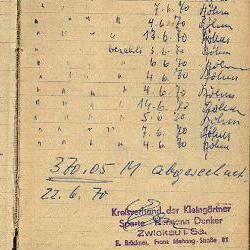 " " " 7.6.70 Böhm
" " " 4.6.70 Böhm
" " " 13.6.70 Böhm
" " bezahlt 3.6.70 Böhm
" " " 6.6.70 Böhm
" " " 4.6.70 Böhm
" " " 4.6.70 Böhm
" " " 14.6.70 Böhm
" " " 5.6.70 Böhm
" " " 7.6.70 Böhm
" " " 4.6.70 Böhm
370.05 M abgerechnet
22.6.70
Kreisverband der Kleingärtner
Sparte Hermann Dunker
Zwickau i. Sa.
E. Brückner, Franz Mehring-Straße 81